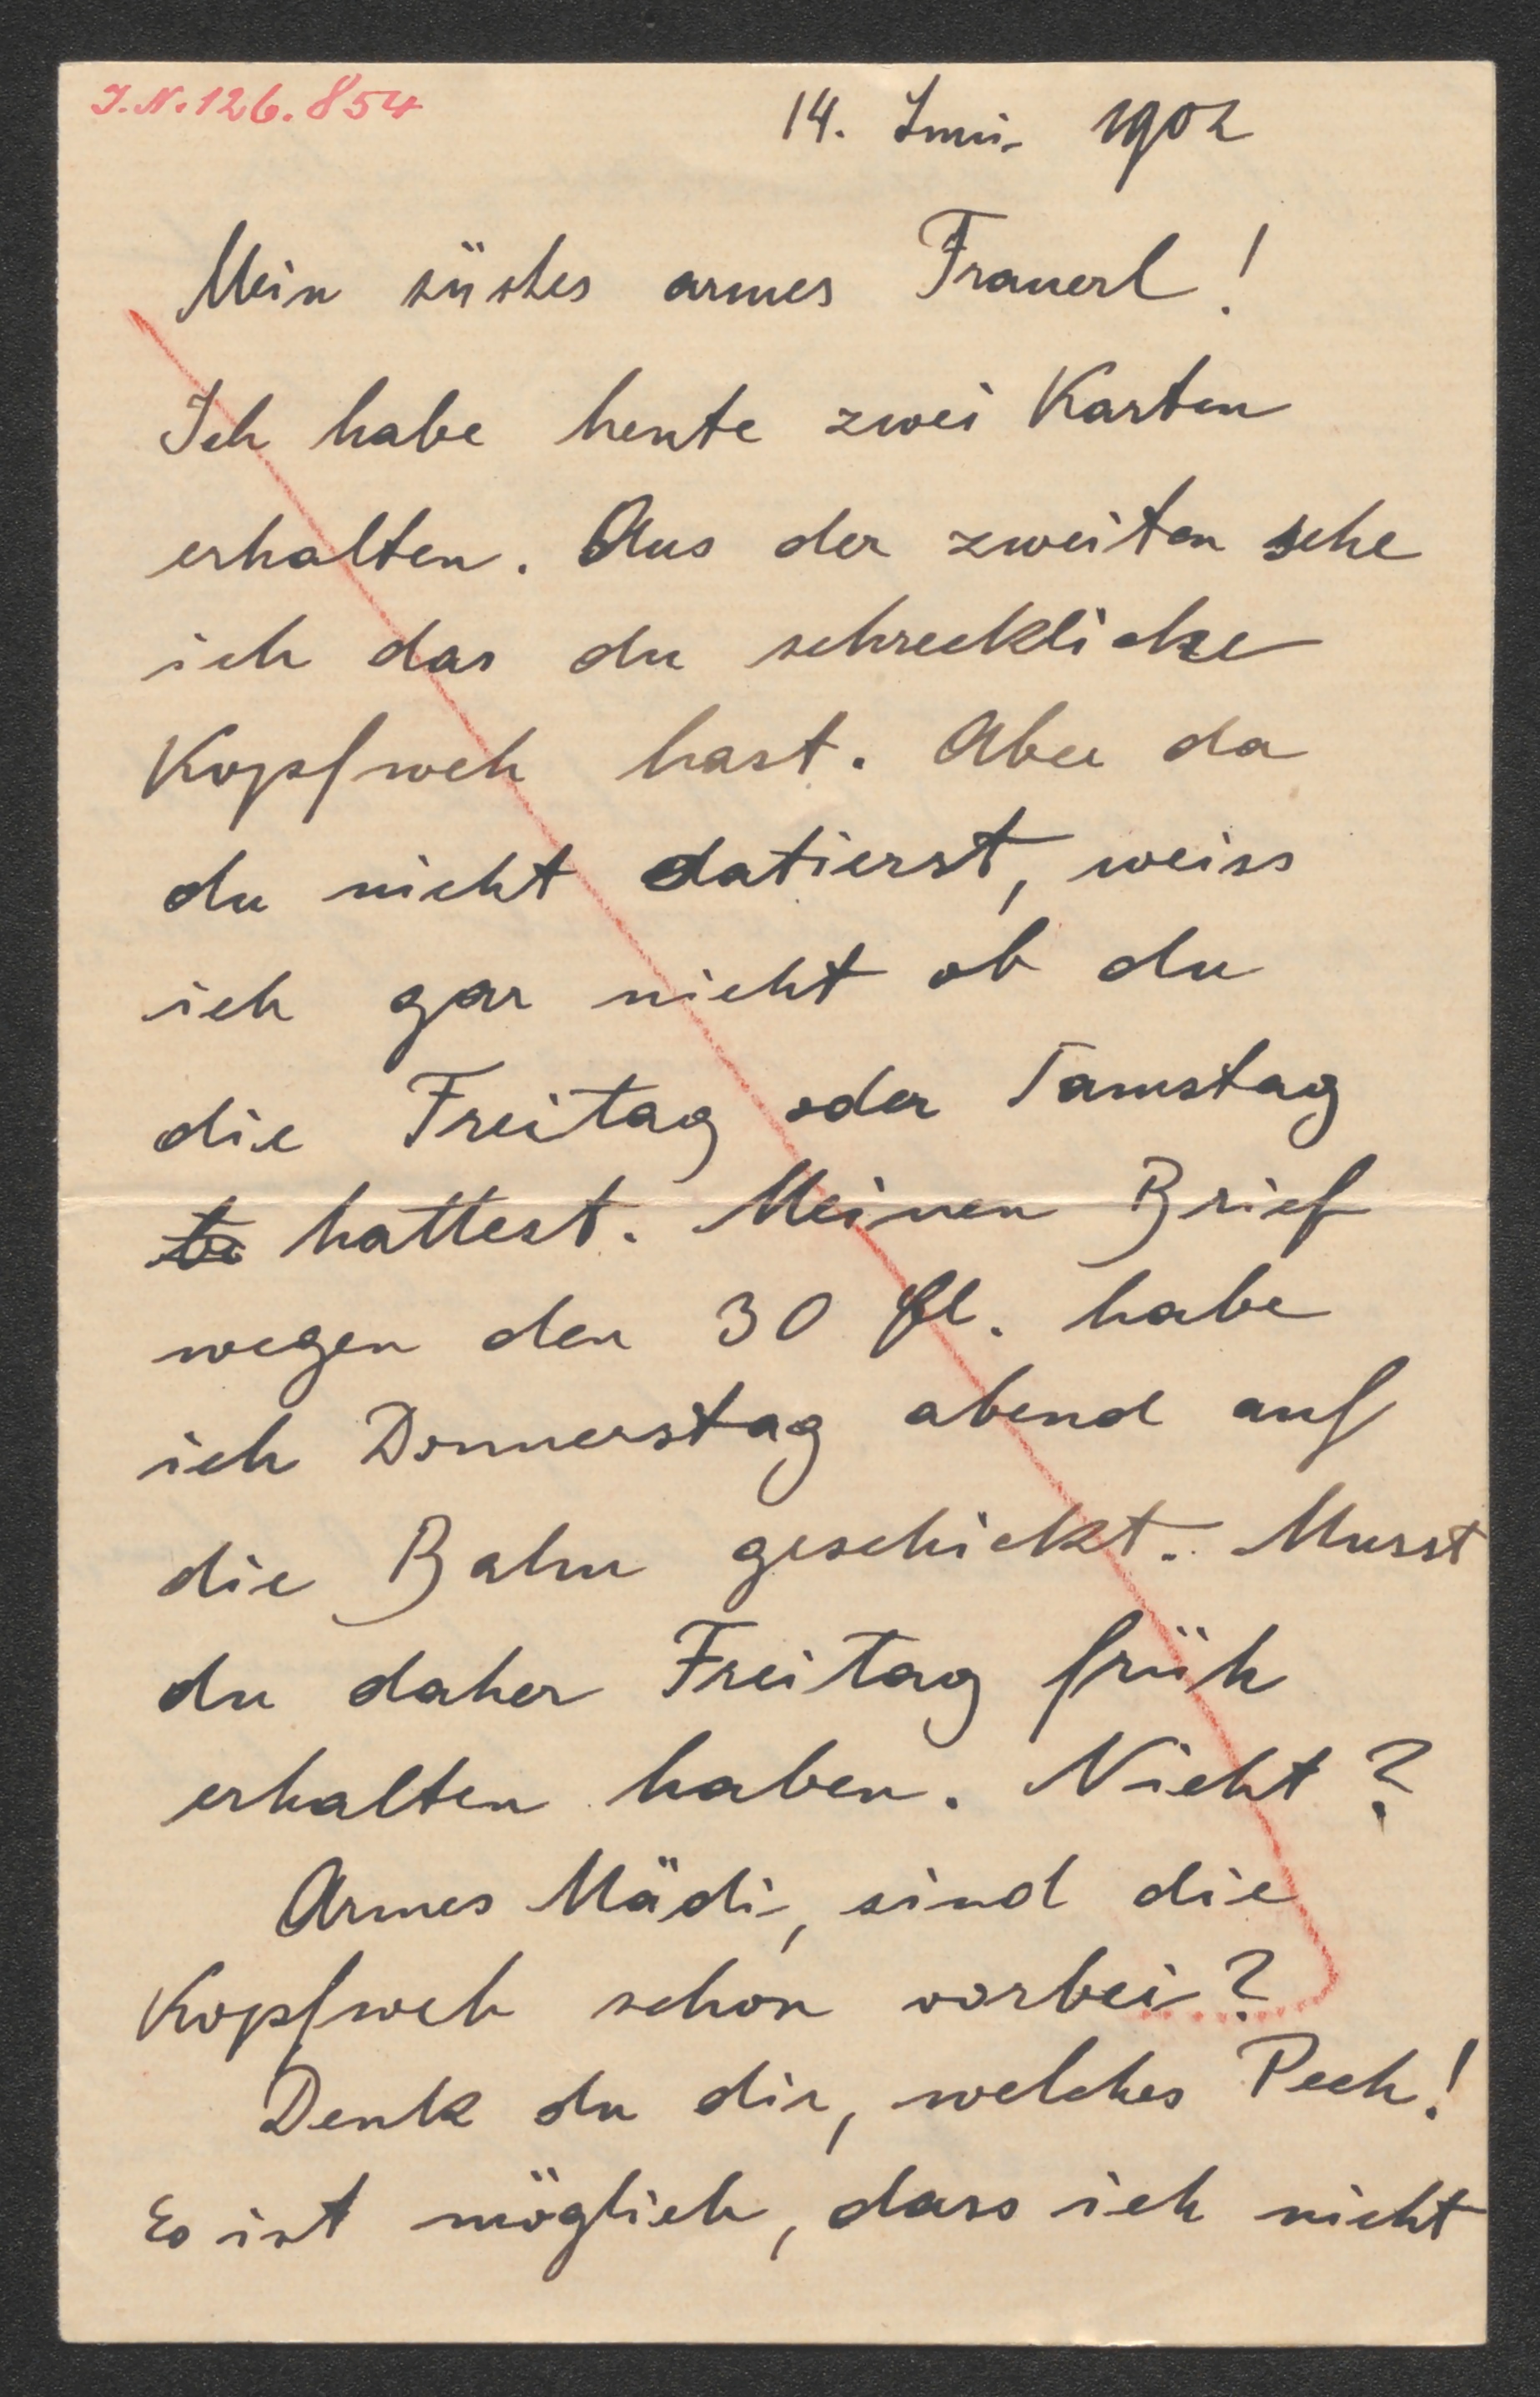 J.N. 126.854
14. Juni 1902
Mein süstes armes Frauerl!
Ich habe heute zwei Karten
erhalten. Aus der zweiten sehe
ich das du schreckliche
Kopfweh hast. Aber da
du nicht datierst, weiss
ich gar nicht ob du
die Freitag oder Samstag
hattest. Meinen Brief
wegen den 30 fl. habe
ich Donnerstag abend auf
die Bahn geschickt. Musst
du daher Freitag früh
erhalten haben. Nicht?
Armes Mädi, sind die
Kopfweh schon vorbei?
Denk du dir, welches Pech!
Es ist möglich, dass ich nicht